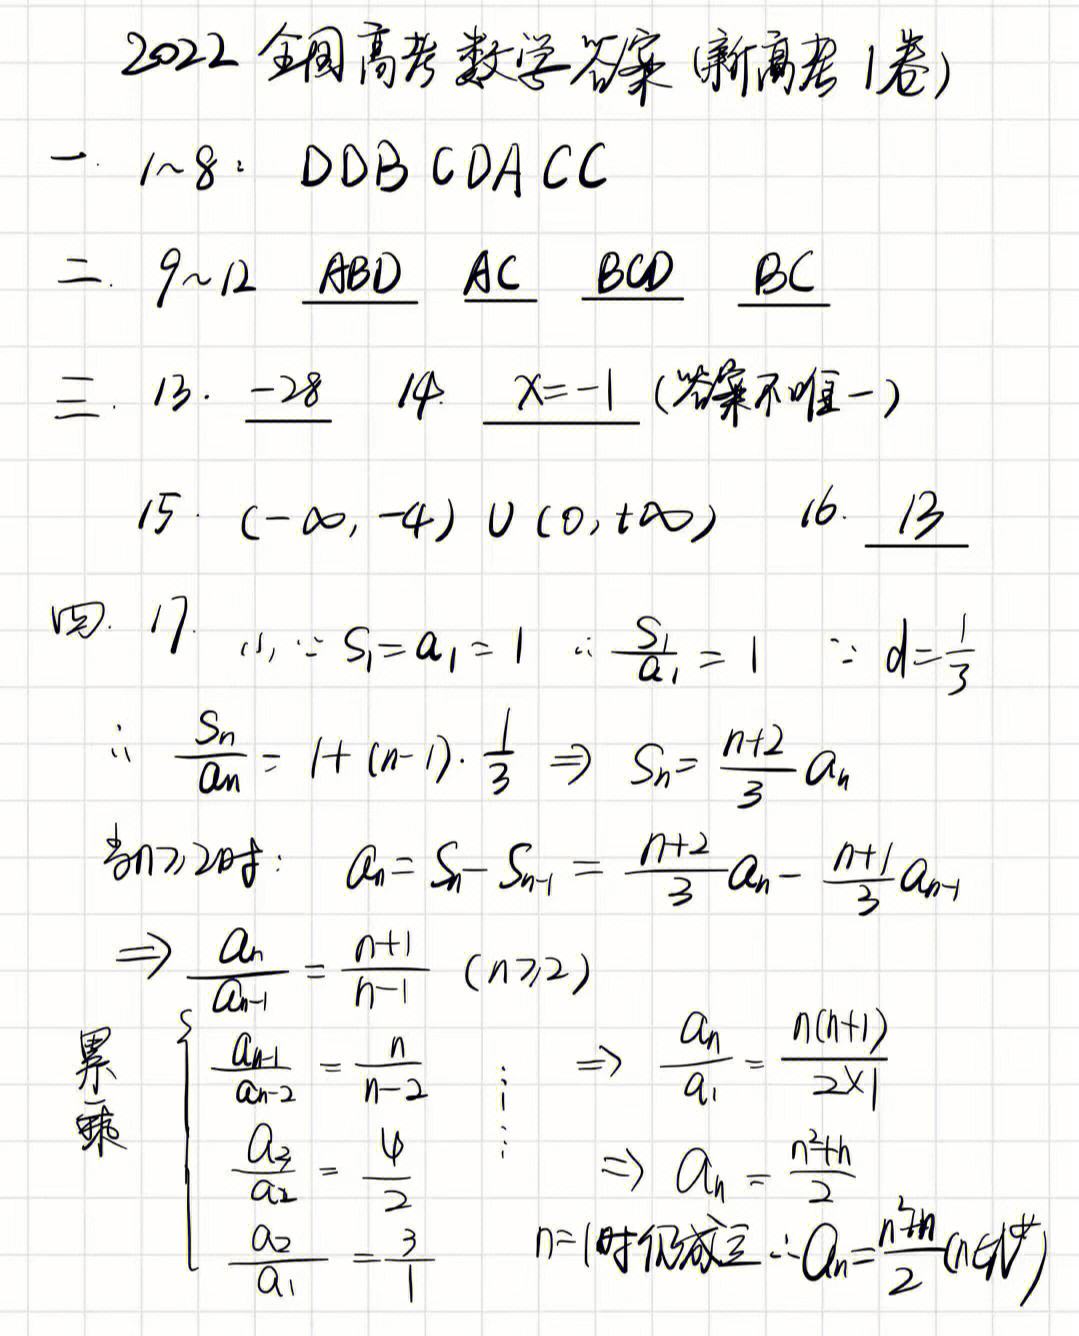 2022 全国高考数学答案 (新高考 1卷)
一. 1~8: DDB CDA CC
二. 9~12 ABD AC BCD BC
三. 13. -28 14. x=-1 (答案不唯一)
15. (-∞, -4) ∪ (0, +∞) 16. 13
四. 17. (1) ∵ S₁=a₁=1 ∴ S₁/a₁ = 1 ∵ d=1/3
∴ Sn/an = 1+(n-1)·1/3 ⇒ Sn= (n+2)/3 an
当n≥2时: an=Sn-Sn-1 = (n+2)/3 an - (n+1)/3 an-1
⇒ an/an-1 = (n+1)/(n-1) (n≥2)
累乘 { an-1/an-2 = n/(n-2) ⋮ ⇒ an/a₁ = n(n+1)/(2×1)
a₃/a₂ = 4/2 ⇒ an = (n²+n)/2
a₂/a₁ = 3/1 n=1时仍成立 ∴ an=(n²+n)/2 (n∈N*)